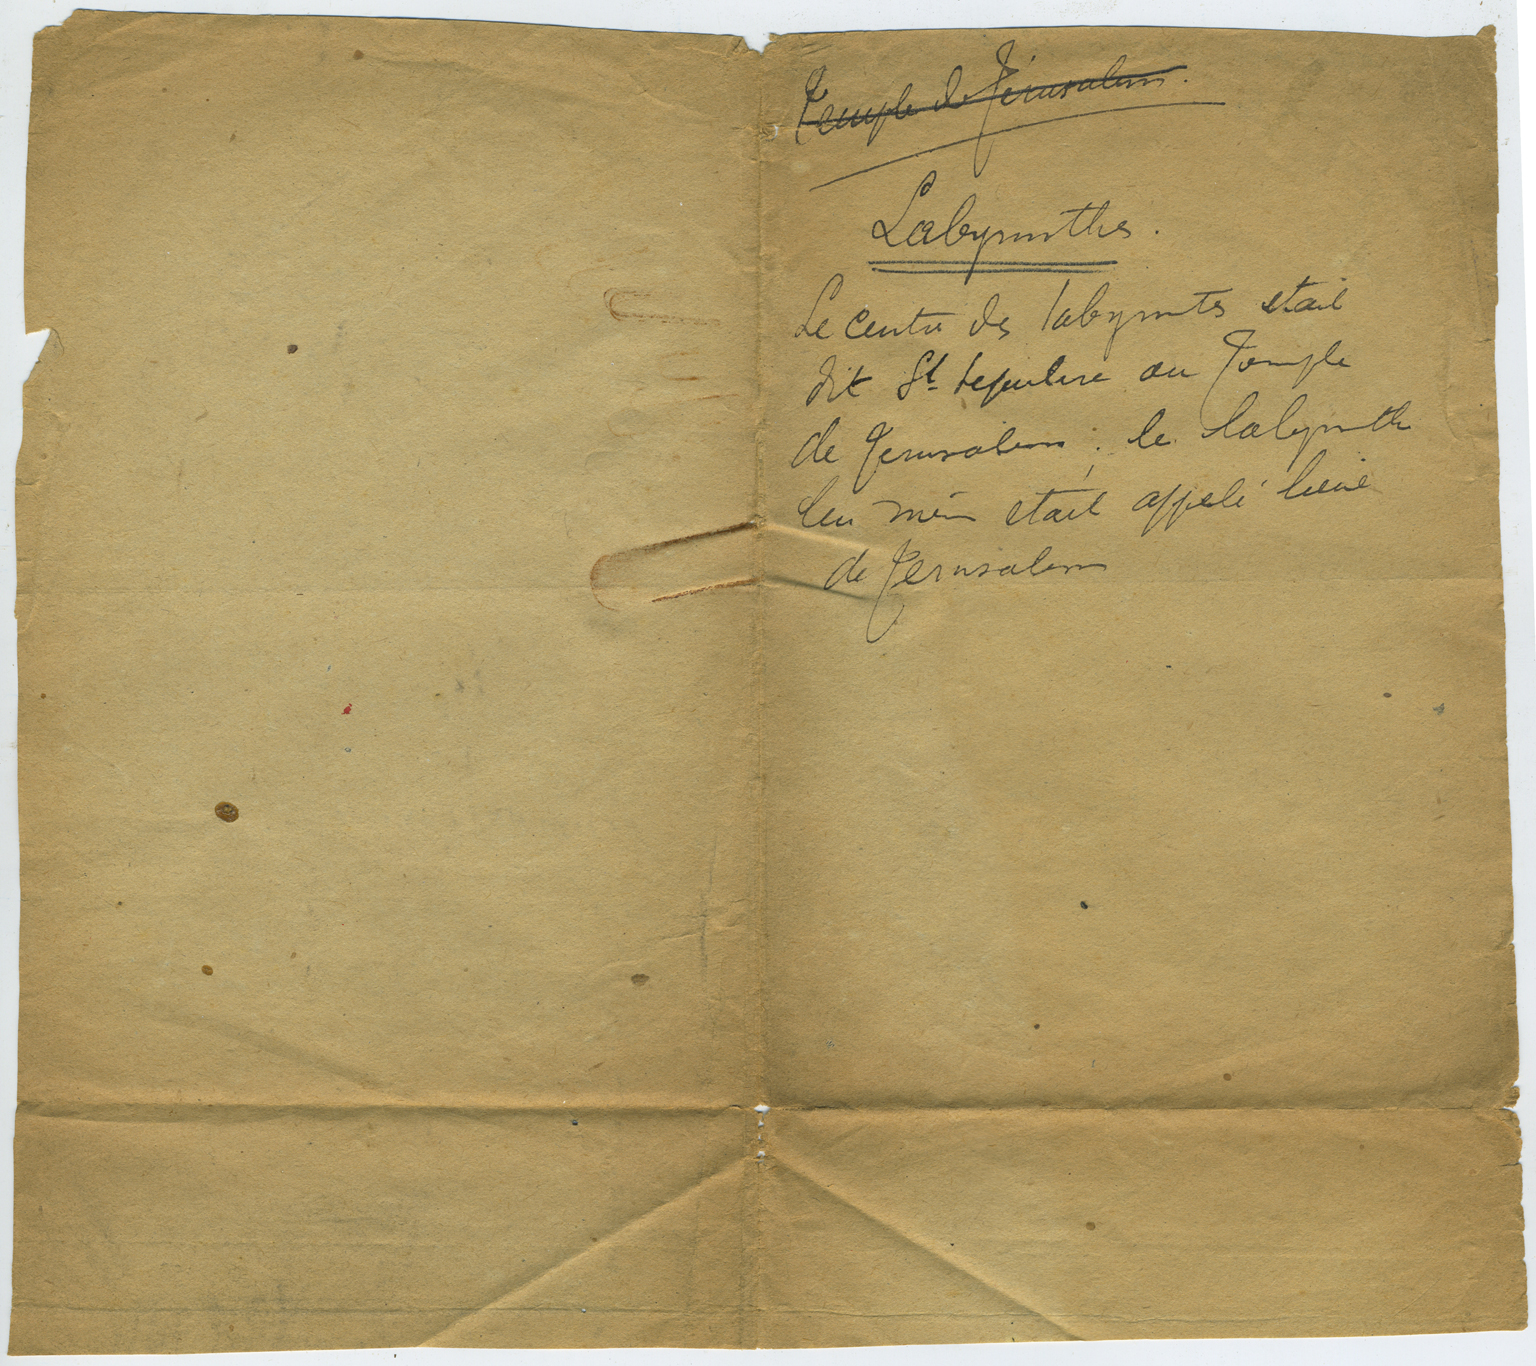 Temple de Jérusalem.
Labyrinthes.
Le centre des labyrintes etait
dit St. Sepulcre ou Temple
de Jerusalem ; le labyrinthe
lui même etait appelé lieue
de Jerusalem